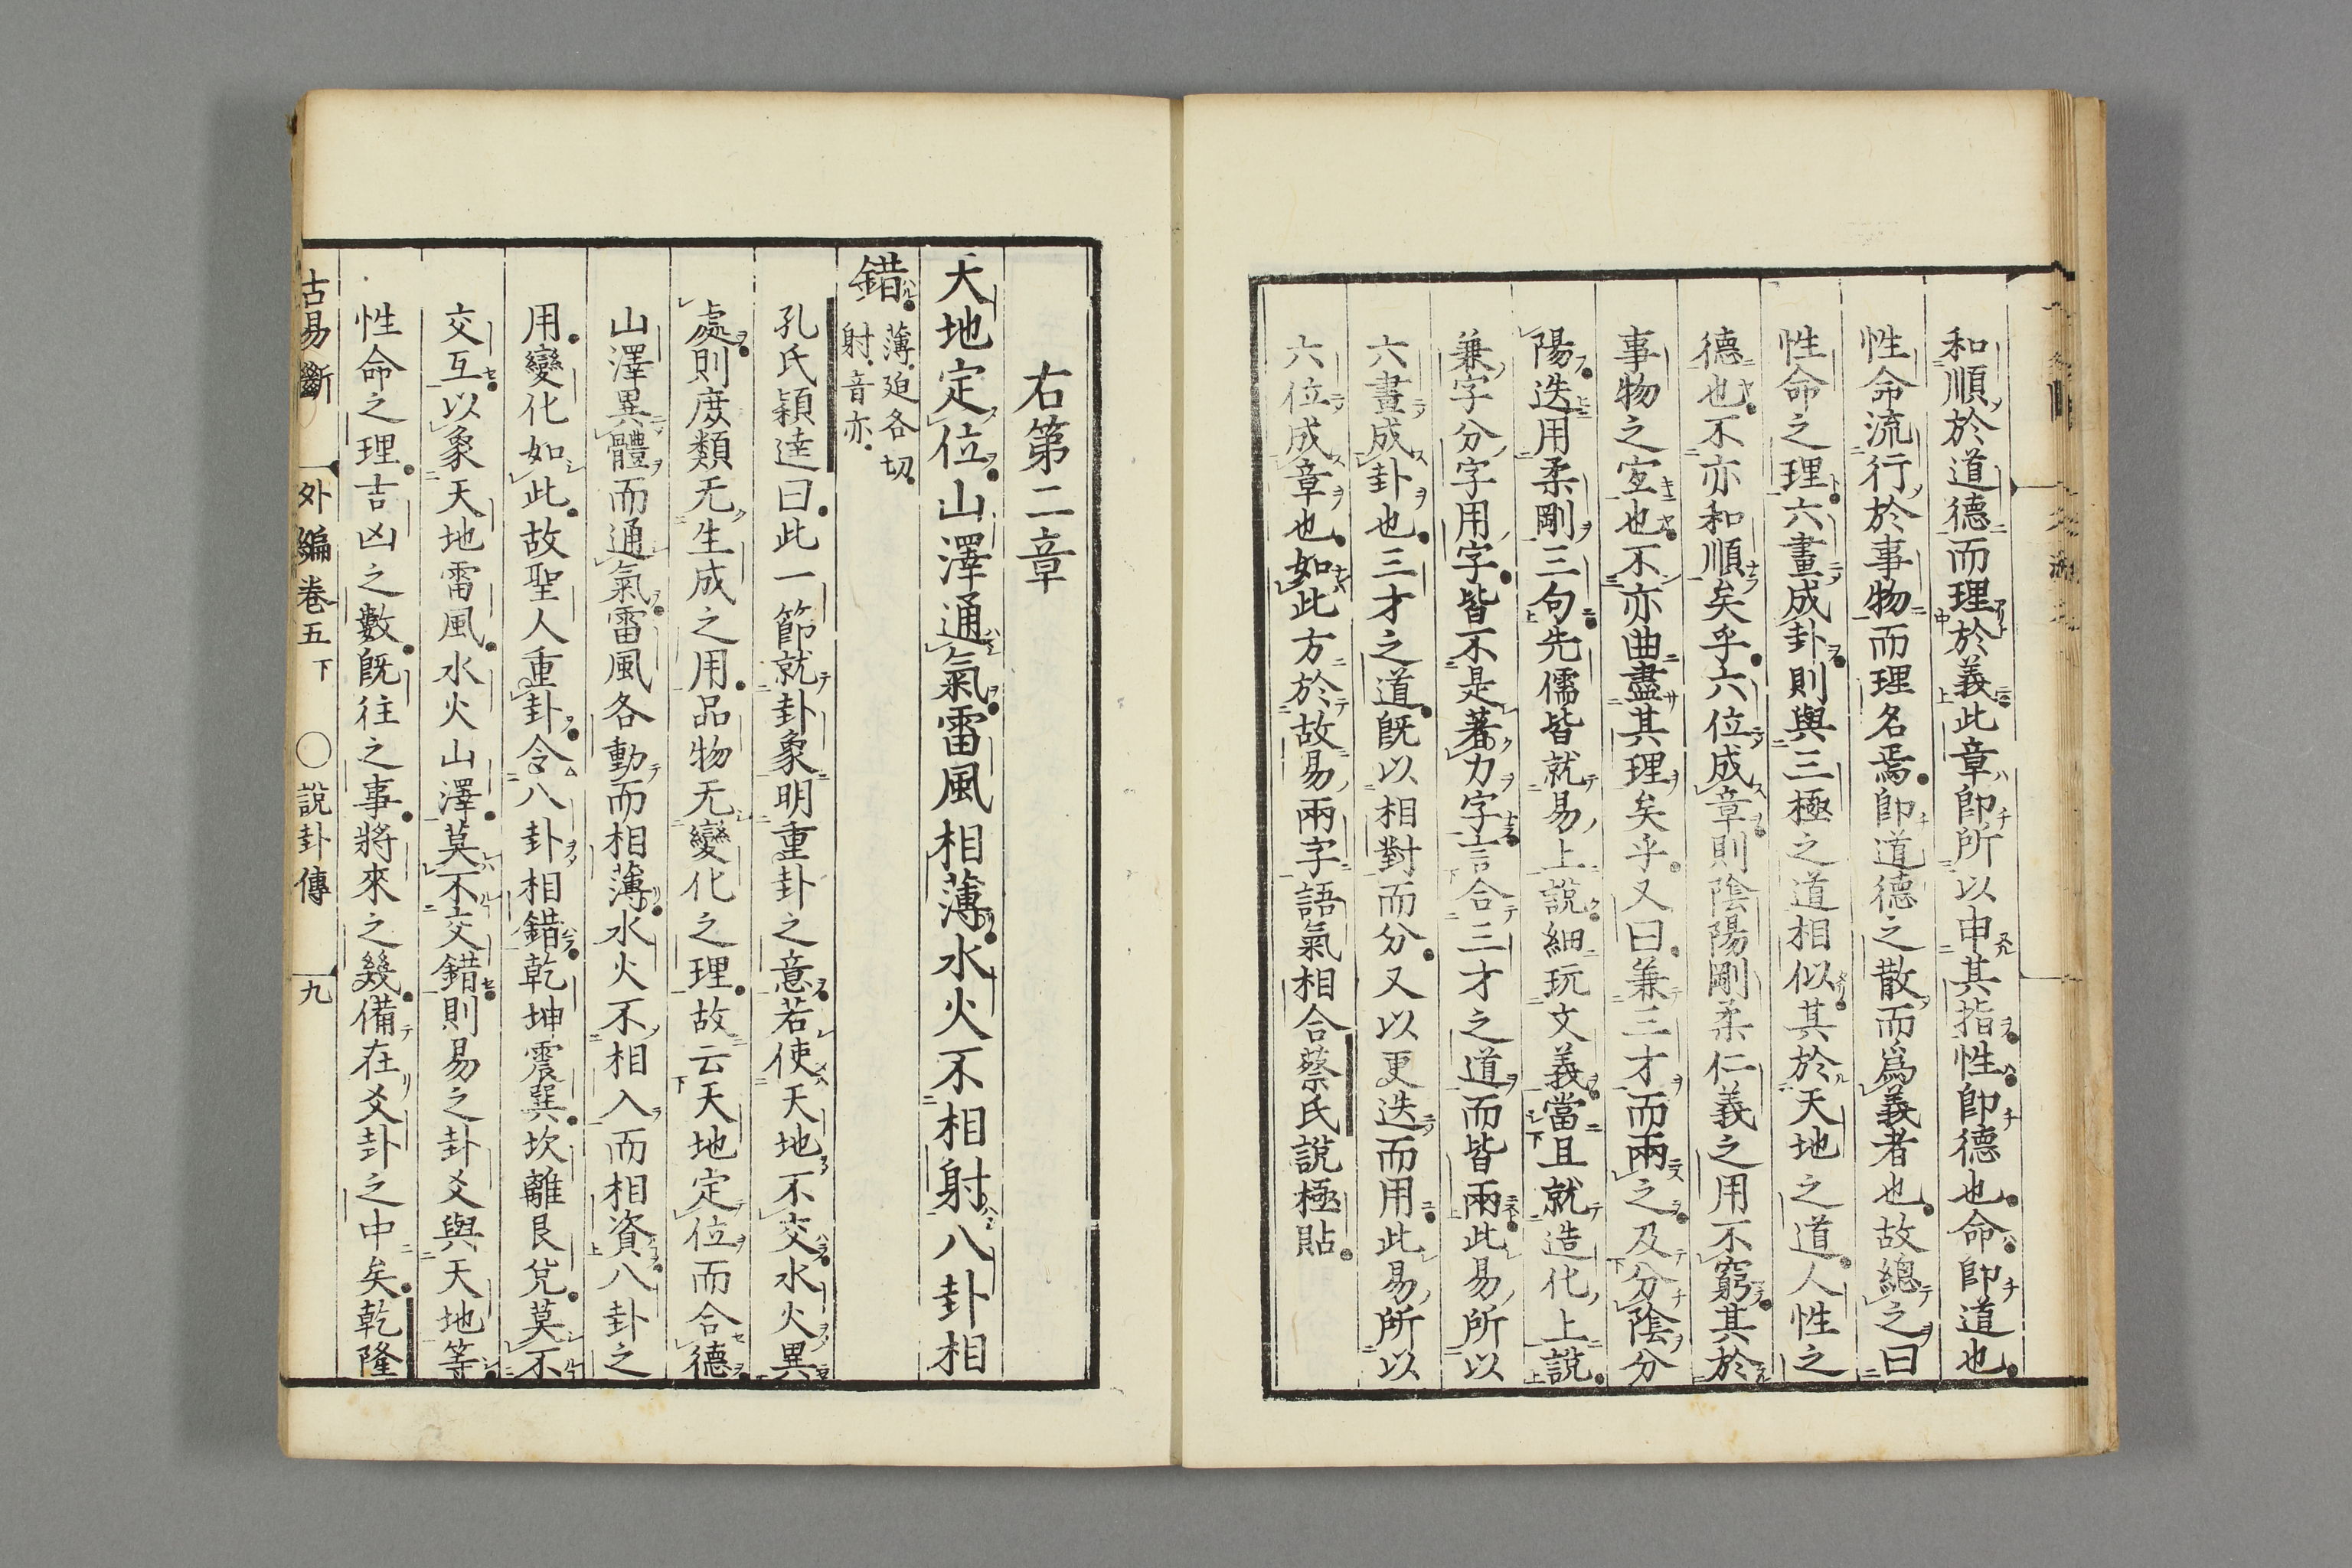 和順於道德而理於義此章即所以申其指性即德也命即道也
性命流行於事物而理名焉即道德之散而爲義者也故總之曰
性命之理六畫成卦則與三極之道相似其於天地之道人性之
德也不亦和順矣乎六位成章則陰陽剛柔仁義之用不窮其於
事物之宜也不亦曲盡其理矣乎又曰兼三才而兩之及分陰分
陽迭用柔剛三句先儒皆就易上說細玩文義當且就造化上說
兼字分字用字皆不是著力字言合三才之道而皆兩此易所以
六畫成卦也三才之道既以相對而分又以更迭而用此易所以
六位成章也如此方於故易兩字語氣相合蔡氏說極貼
右第二章
天地定位山澤通氣雷風相薄水火不相射八卦相
錯
薄廹各切
射音亦
孔氏穎逹曰此一節就卦象明重卦之意若使天地不交水火異
處則庶類无生成之用品物无變化之理故云天地定位而合德
山澤異體而通氣雷風各動而相薄水火不相入而相資八卦之
用變化如此故聖人重卦令八卦相錯乾坤震巽坎離艮兌莫不
交互以象天地雷風水火山澤莫不交錯則易之卦爻與天地等
性命之理吉凶之數既往之事將來之幾備在爻卦之中矣乾隆
古易斷 外編卷五下 ○說卦傳 九